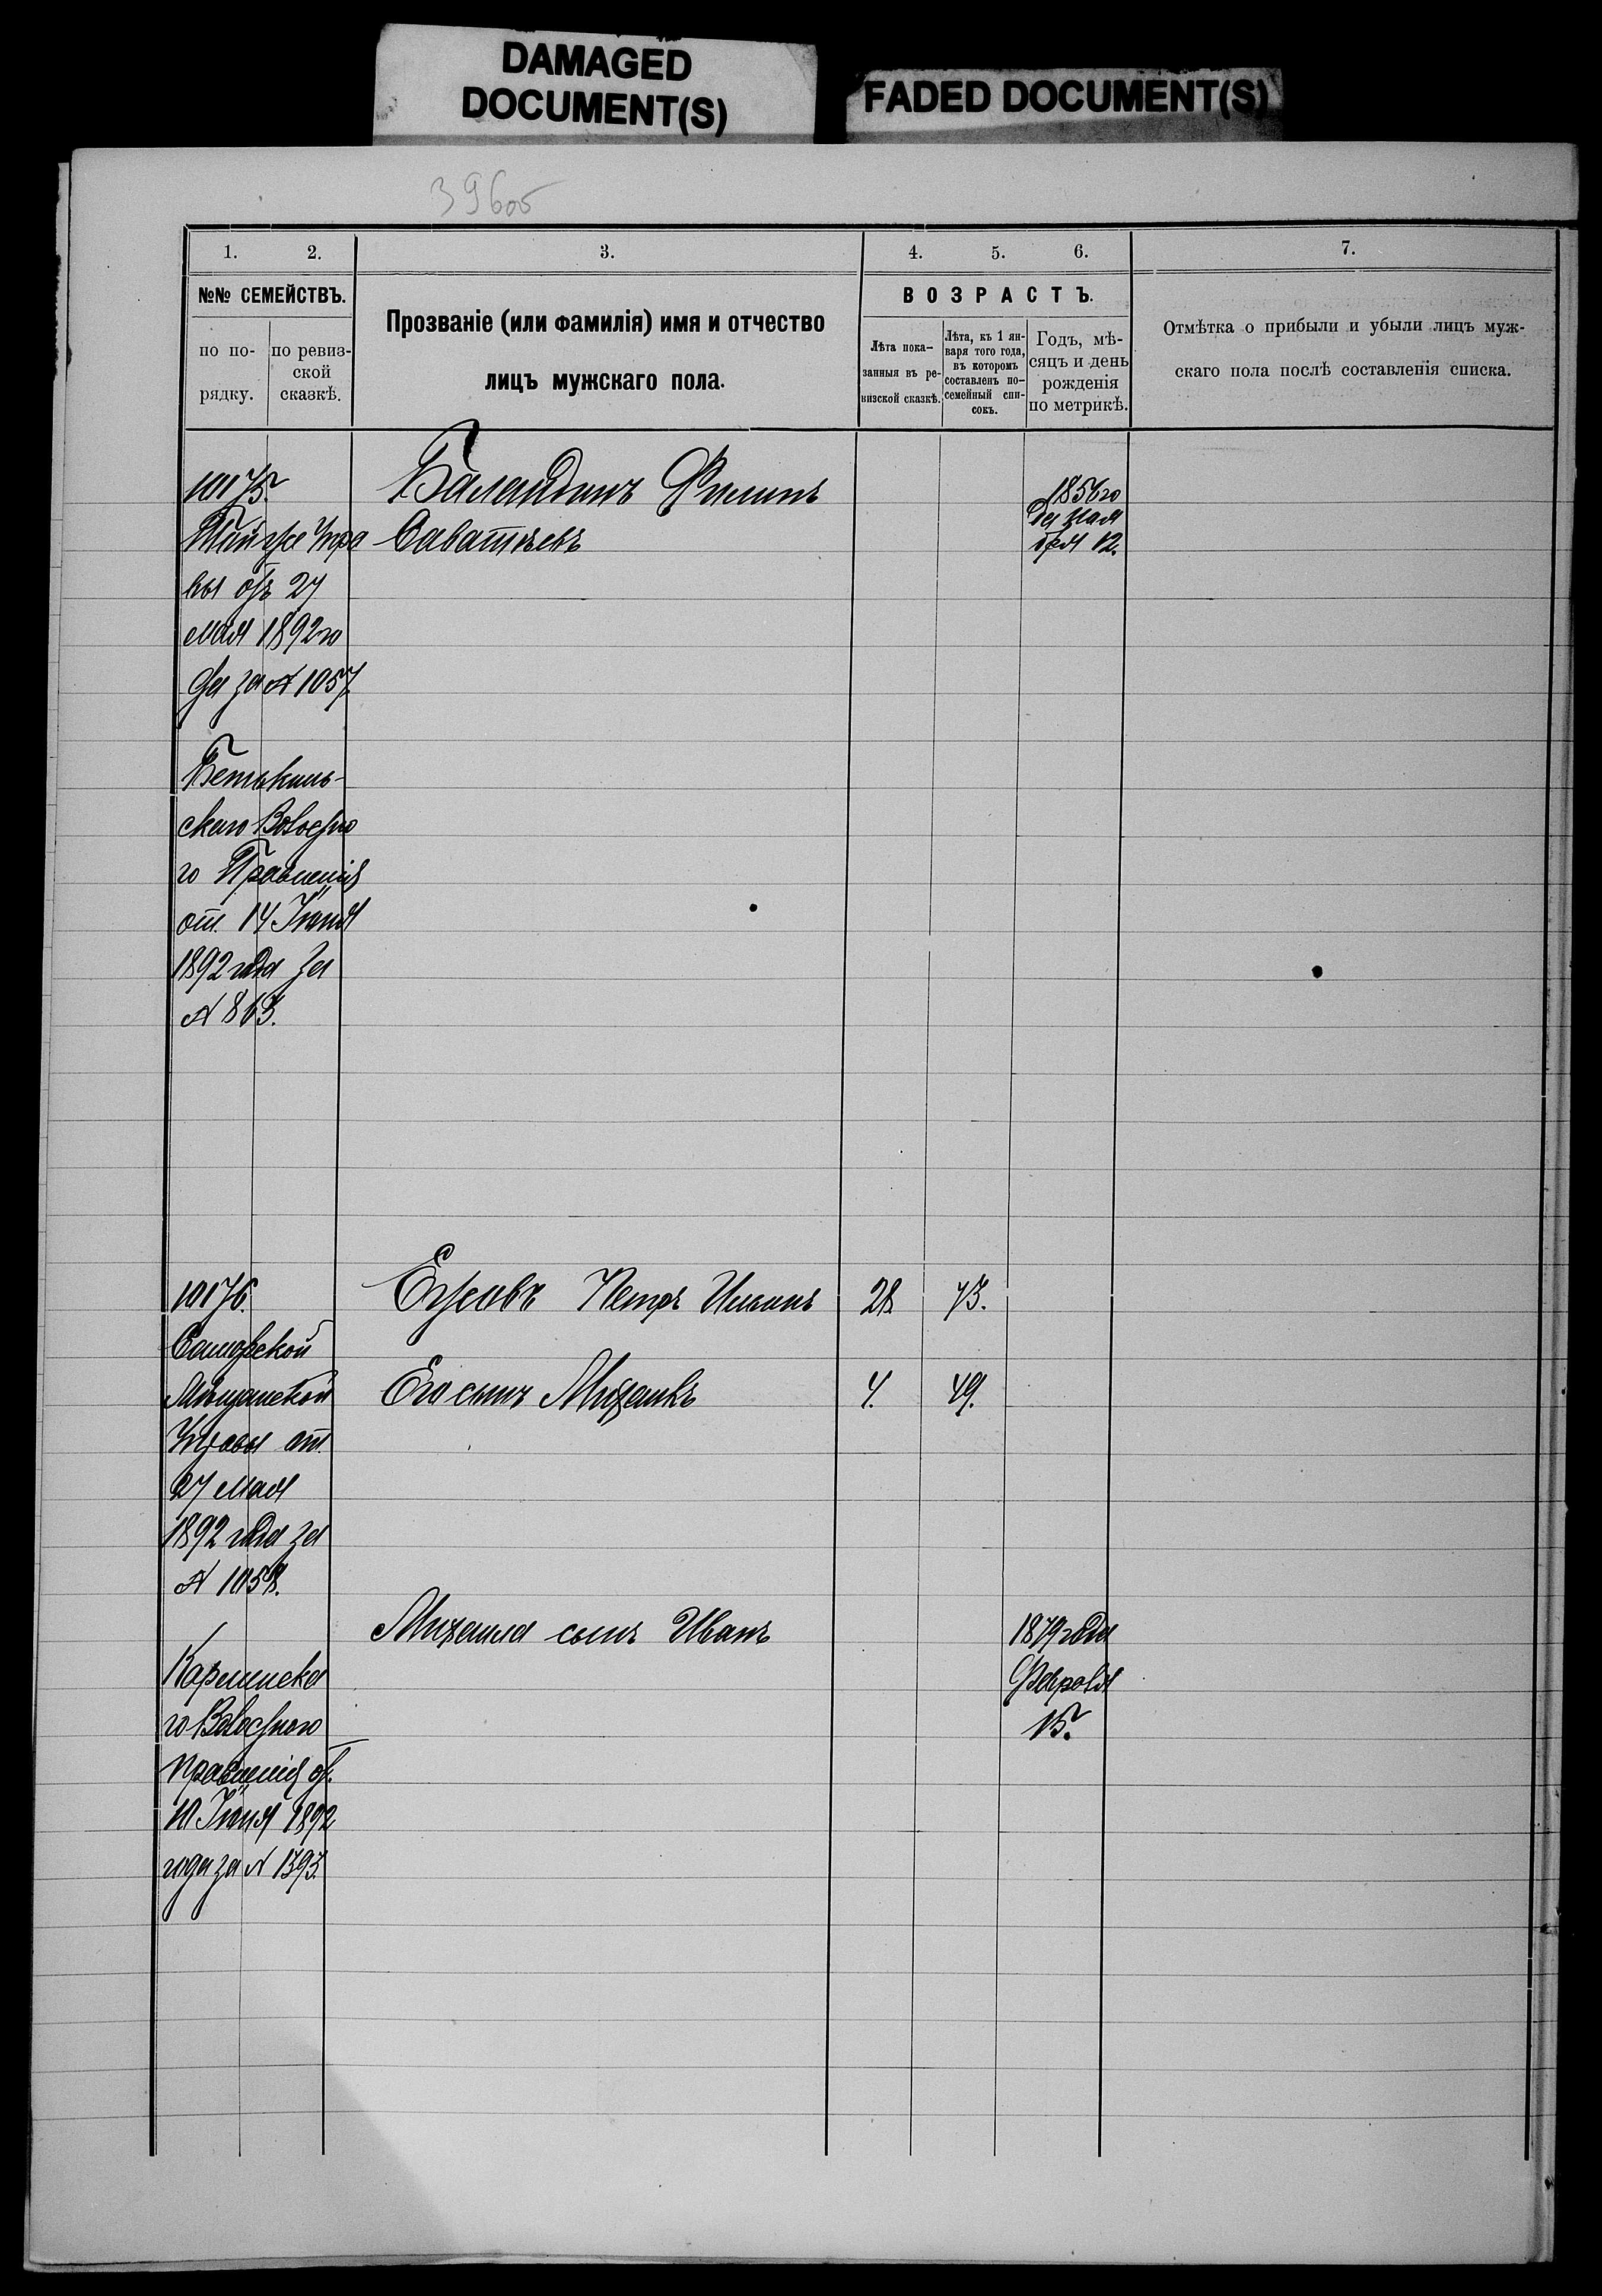 DAMAGED
DOCUMENT(S)
FADED DOCUMENT(S)
396об
1. 2. 3. 4. 5. 6. 7.
№№ СЕМЕЙСТВЪ.
по по-
рядку.
по ревиз-
ской
сказкѣ.
Прозваніе (или фамилія) имя и отчество
лицъ мужскаго пола.
ВОЗРАСТЪ.
Лѣта пока-
занныя въ ре-
визской сказкѣ.
Лѣта, къ 1 ян-
варя того года,
въ которомъ
составленъ по-
семейный спи-
сокъ.
Годъ, мѣ-
сяцъ и день
рожденія
по метрикѣ.
Отмѣтка о прибыли и убыли лицъ муж-
скаго пола послѣ составленія списка.
10175.
Той же Упра
вы отъ 27
мая 1892 го
да за № 1057
Бетькинь-
скаго Волостно
го Правленія
от. 14 Іюня
1892 года за
№ 863.
Баландинъ Филипъ
Саватѣевъ
1856 го
да Ноя
бря 12.
10176.
Самарской
Мѣщанской
Управы от.
27 мая
1892 года за
№ 1058.
Ежовъ Петръ Ильинъ 28 73.
Его сынъ Михаилъ 4. 49.
Михаила сынъ Иванъ
1879 года
Февраля
15.
го Волостного
правленія от.
10 Іюня 1892
года за № 1393.